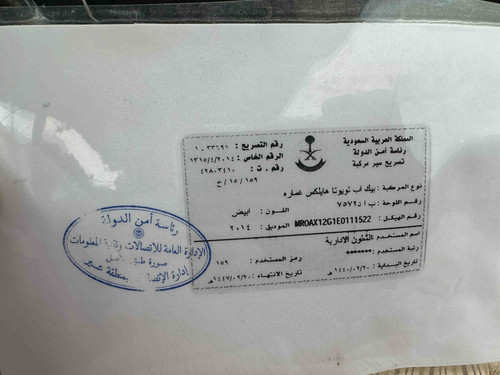 المملكة العربية السعودية
رئاسة أمن الدولة
تصريح سير مركبة
رقم التصريح : ٣٣٦٩١ - ١
الرقم الخاص : ١٣١٥/٤/٢٠١٤
رقم . ت : ٤٢٨٠٣٤١٠
١٥٩ / ١٥ / ح
نوع المركبة : بيك أب تويوتا هايلكس غماره
رقم اللوحة : ب ا د ٧٥٧٢ اللون : أبيض
رقم الهيكل : MROAX12G1E0111522 الموديل : ٢٠١٤
اسم المستخدم : الشئون الادارية
رتبة المستخدم : ******* رمز المستخدم : ١٥٩
تاريخ البداية : ١٤٤٠/٠٢/٢٠هـ تاريخ الانتهاء : ١٤٤٧/٠٢/٢٠هـ
رئاسة أمن الدولة
الإدارة العامة للاتصالات وتقنية المعلومات
صورة طبق الأصل
إدارة الإتصالات بمنطقة عسير